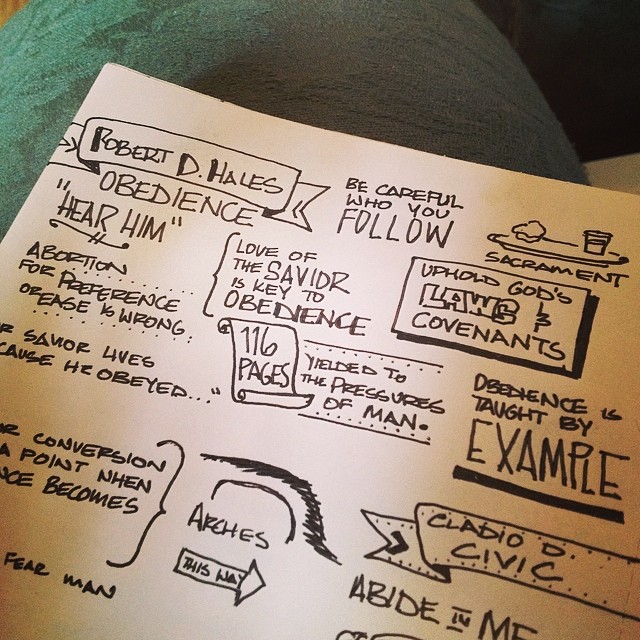 ROBERT D. HALES
OBEDIENCE
"HEAR HIM"
BE CAREFUL
WHO YOU
FOLLOW
SACRAMENT
ABORTION
FOR PREFERENCE
OR EASE IS WRONG.
LOVE OF
THE SAVIOR
IS KEY TO
OBEDIENCE
UPHOLD GOD'S
LAWS &
COVENANTS
R SAVIOR LIVES
CAUSE HE OBEYED..."
116
PAGES
YIELDED TO
THE PRESSURES
OF MAN.
OBEDIENCE IS
TAUGHT BY
EXAMPLE
R CONVERSION
A POINT WHEN
NCE BECOMES
ARCHES
THIS WAY
FEAR MAN
CLADIO D.
CIVIC
ABIDE IN ME